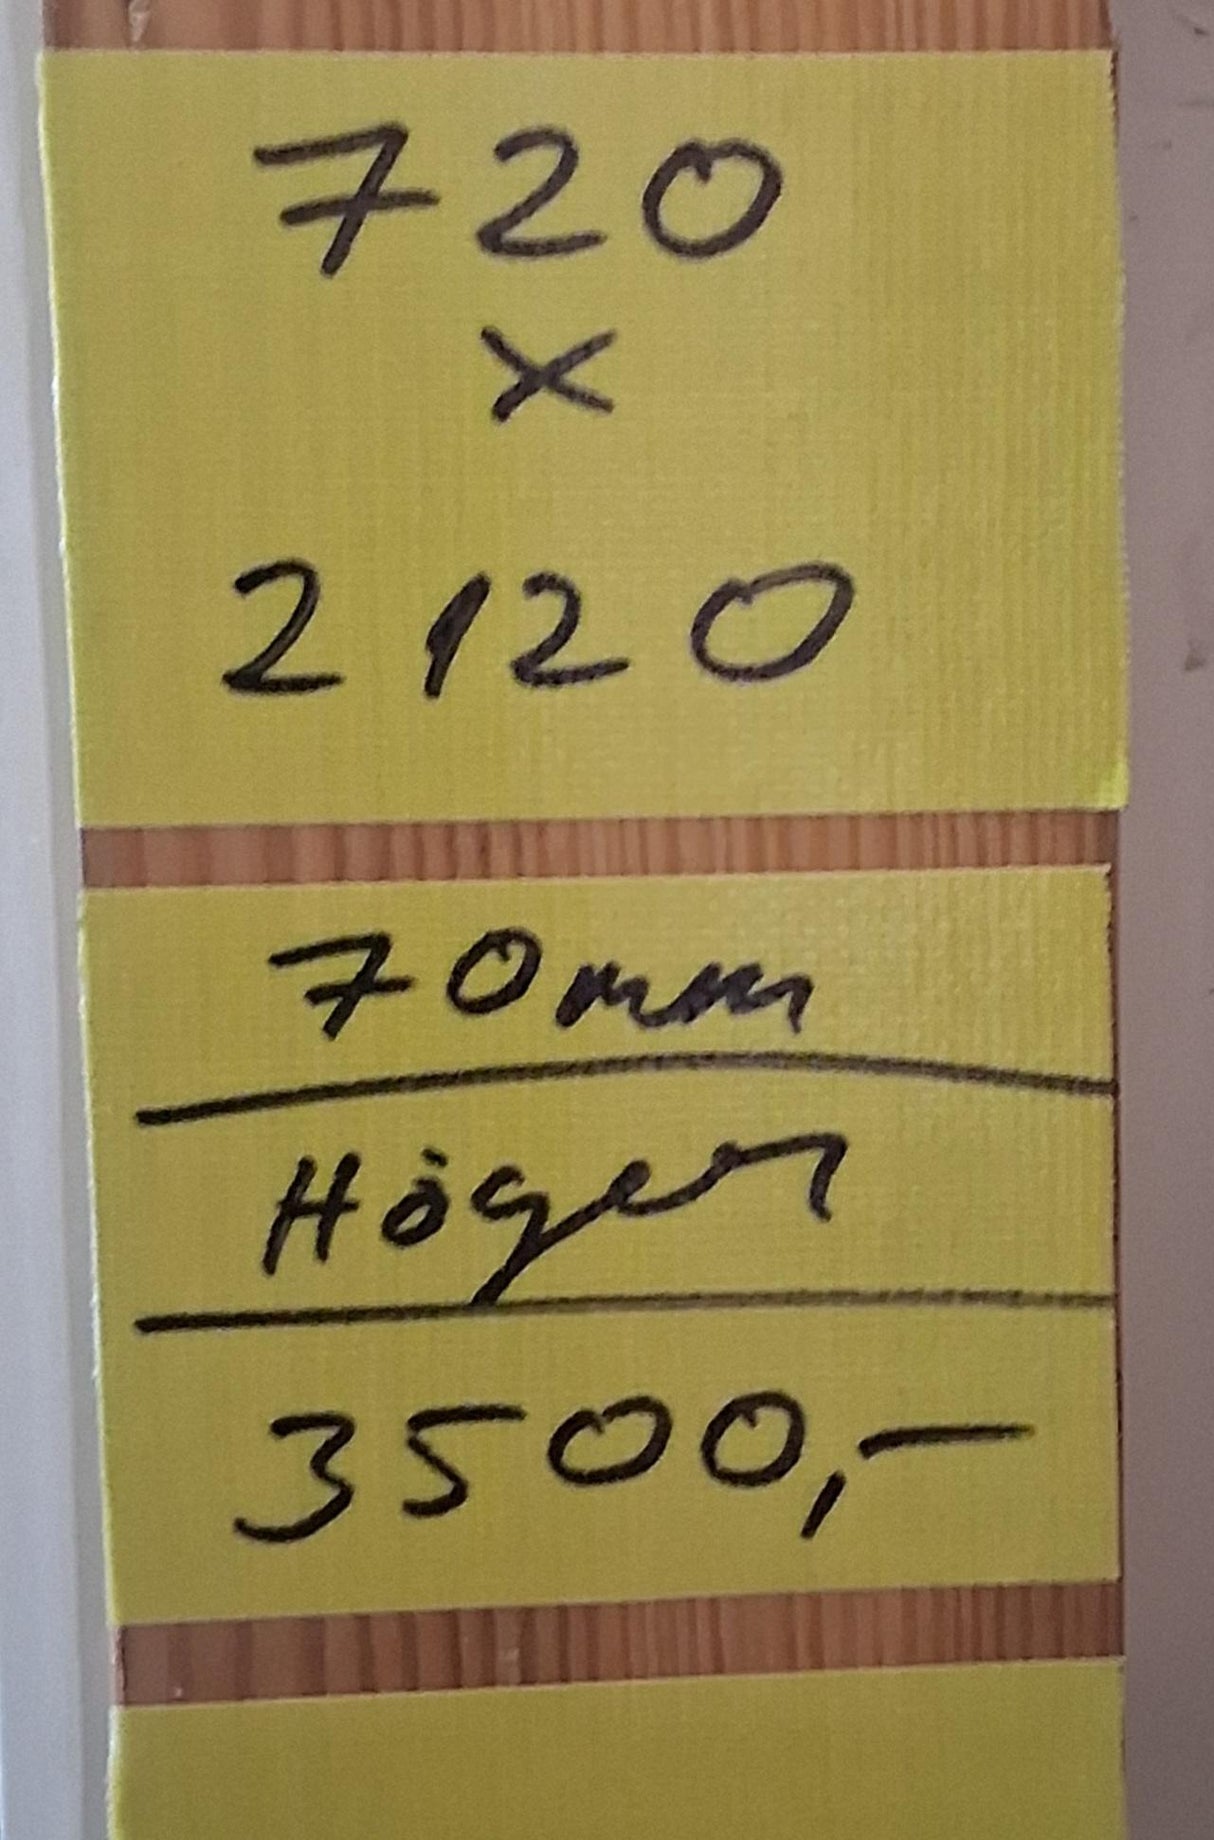 720
x
2120
70mm
Höger
3500,-